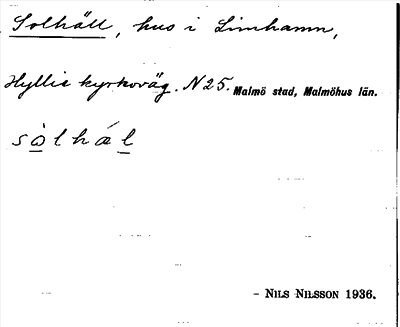 Solhäll, hus i Limhamn,
Hyllie kyrkoväg. N 25. Malmö stad, Malmöhus län.
sòlhál
– NILS NILSSON 1936.